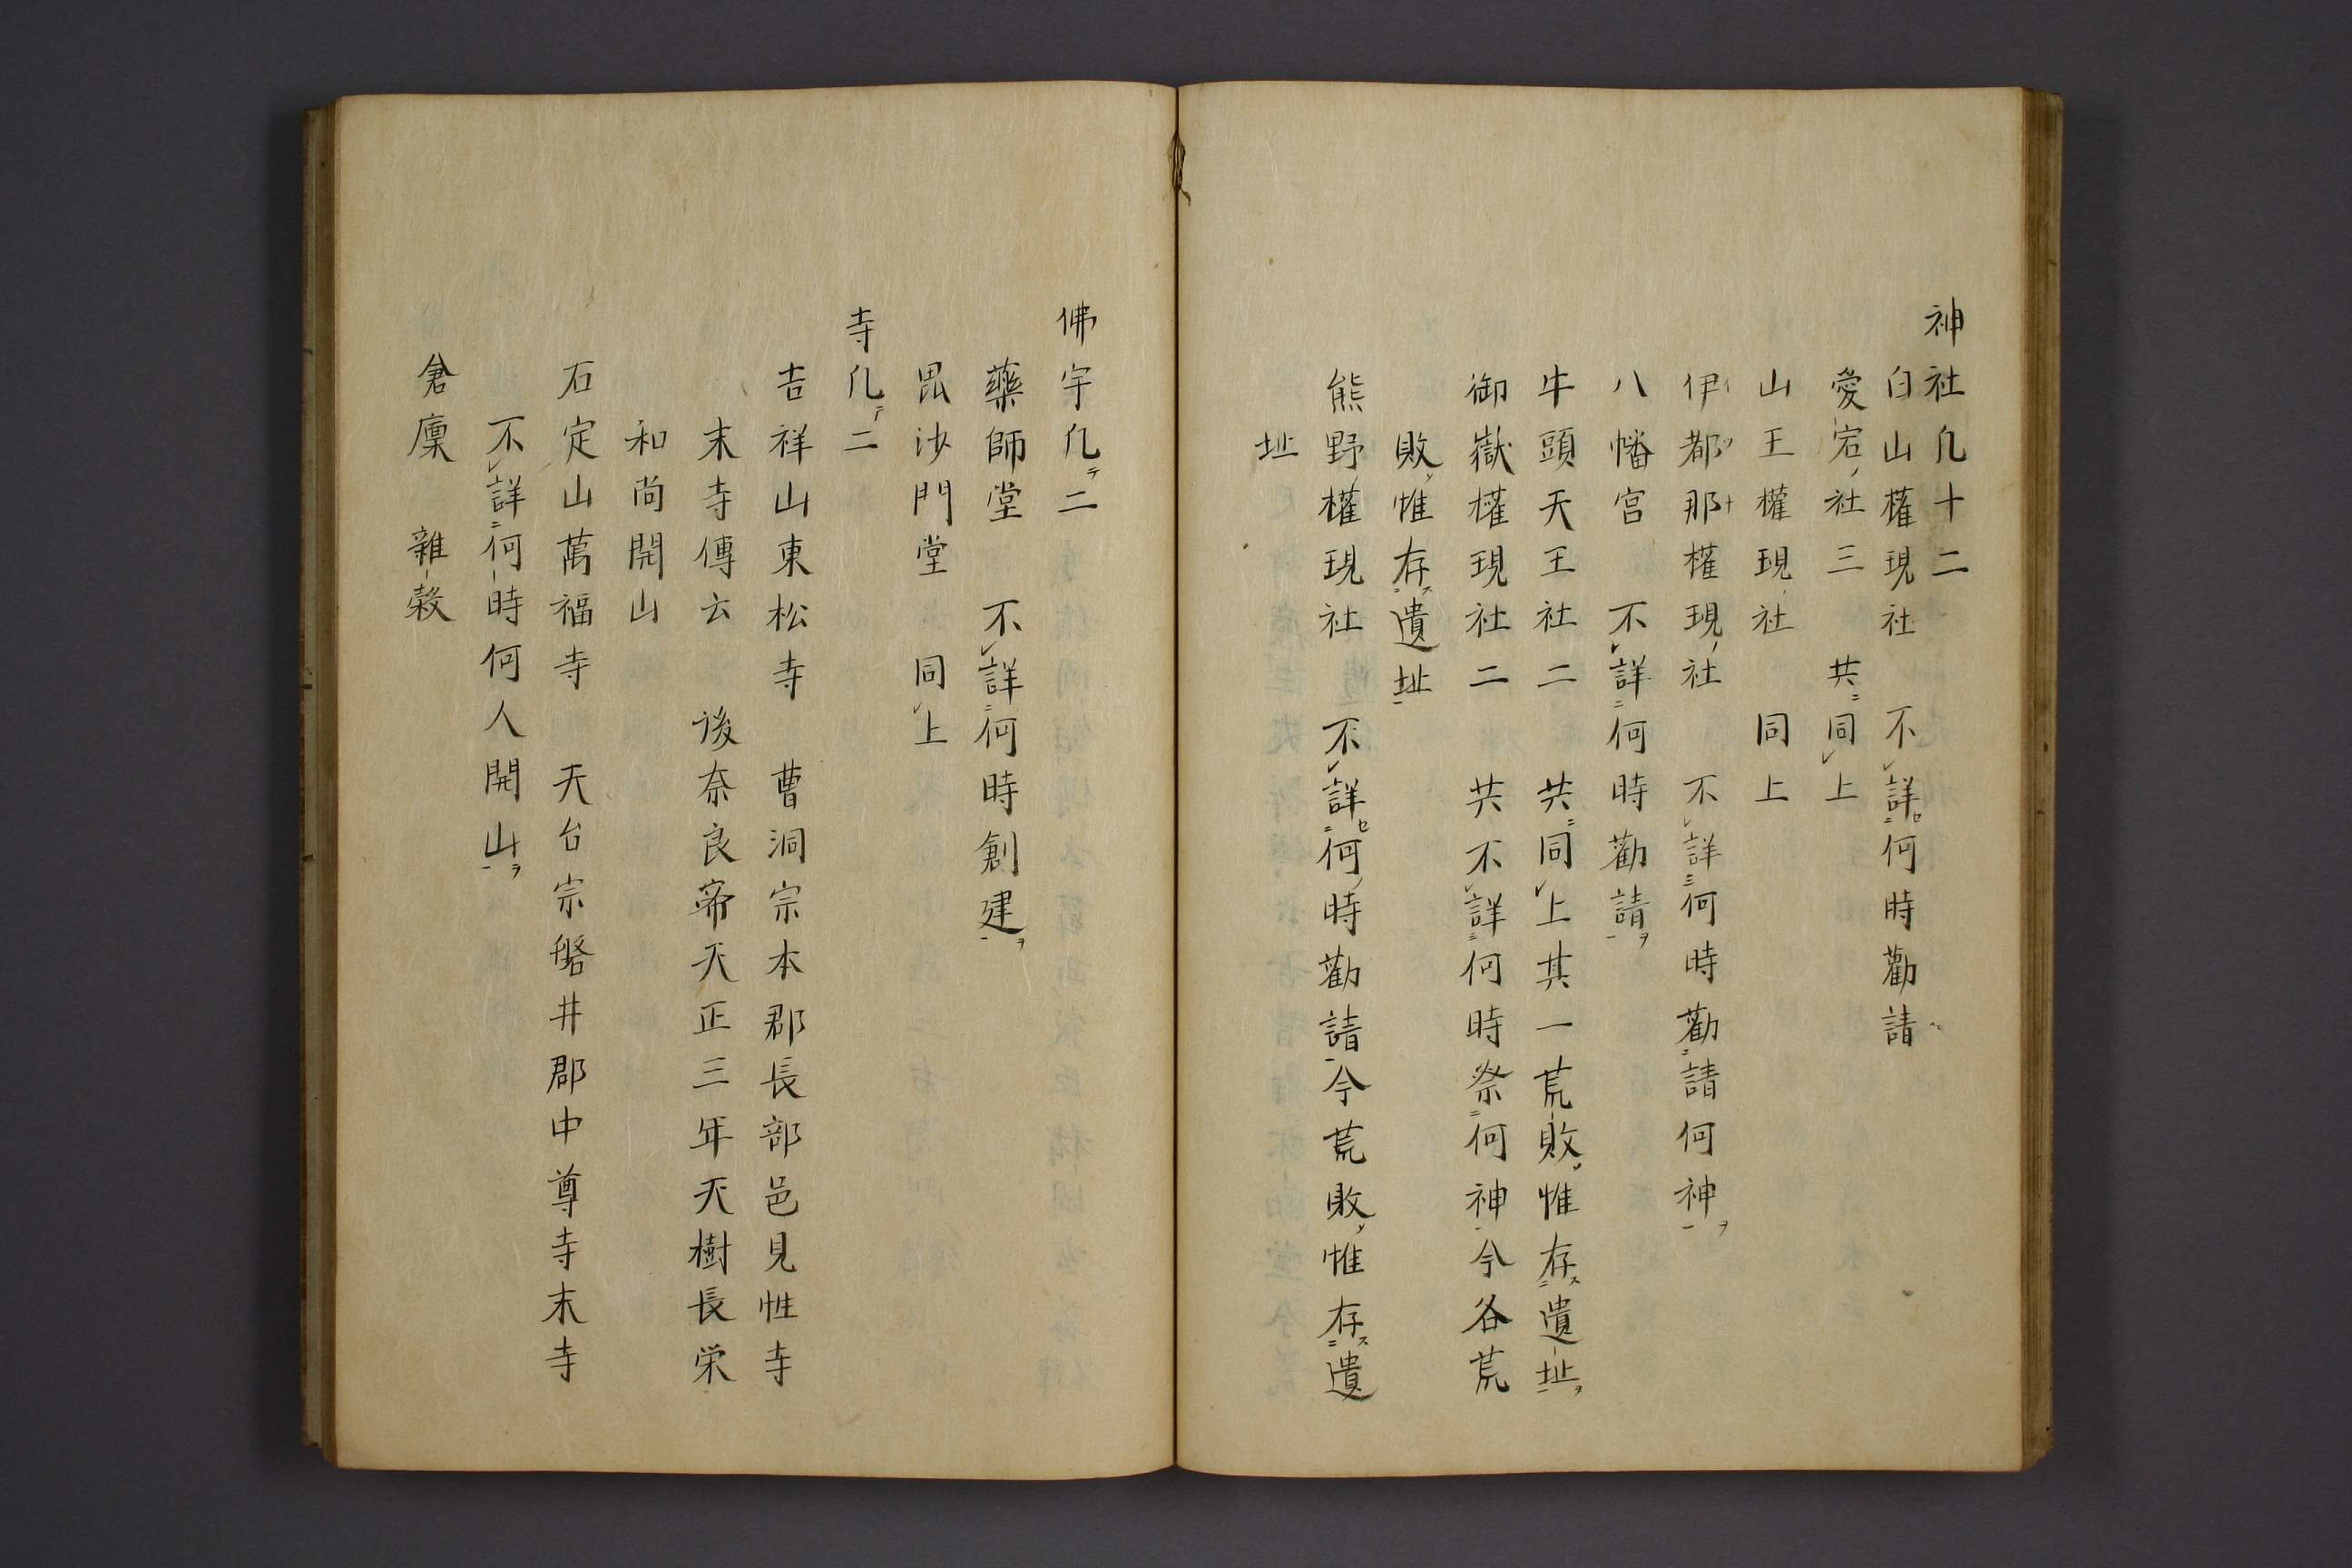 神社凢十二
白山權現社　不詳何時勸請
愛宕社三　共同上
山王權現社　同上
伊都那權現社　不詳何時勸請何神
八幡宮　不詳何時勸請
牛頭天王社二　共同上其一荒敗惟存遺址
御嶽權現社二　共不詳何時祭何神今各荒
敗惟存遺址
熊野權現社　不詳何時勸請今荒敗惟存遺
址
佛宇凢二
藥師堂　不詳何時創建
毘沙門堂　同上
寺凢二
吉祥山東松寺　曹洞宗本郡長部邑見性寺
末寺傳云　後奈良帝天正三年天樹長栄
和尚開山
石定山萬福寺　天台宗磐井郡中尊寺末寺
不詳何時何人開山
倉廩　雜穀